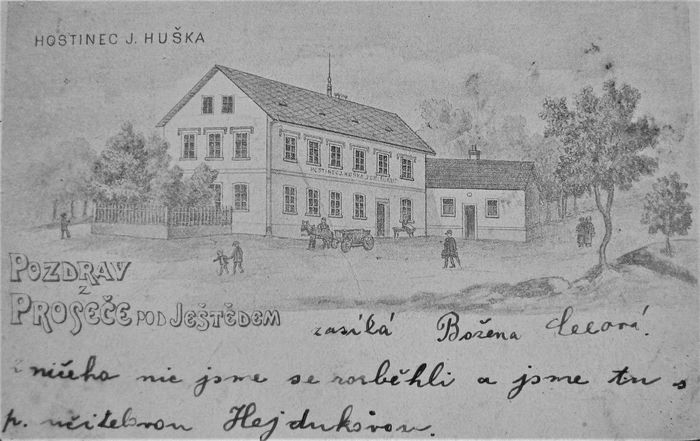 HOSTINEC J. HUŠKA
HOSTINEC J. HUŠKA
POZDRAV
Z
PROSEČE POD JEŠTĚDEM
zasílá Božena
z ničeho nic jsme se rozběhli a jsme tu s
p. učitelkou Hejdukovou.